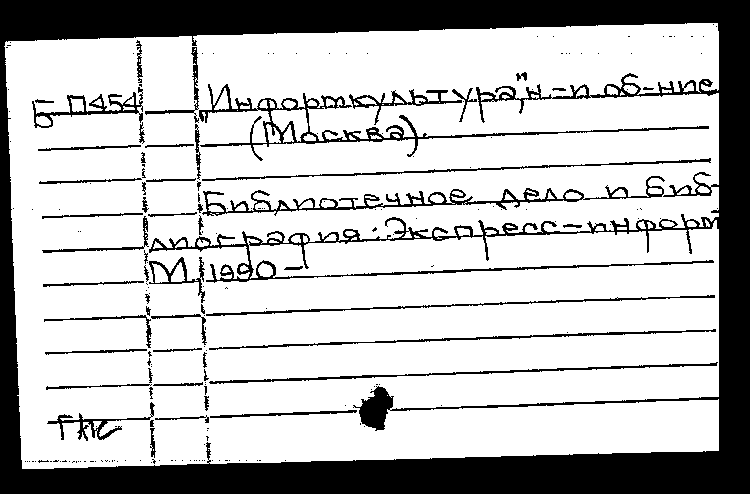 Б П454 „Информкультура", н.-п. об-ние
(Москва).
Библиотечное дело и биб-
лиография: Экспресс-информ
М., 1990 -